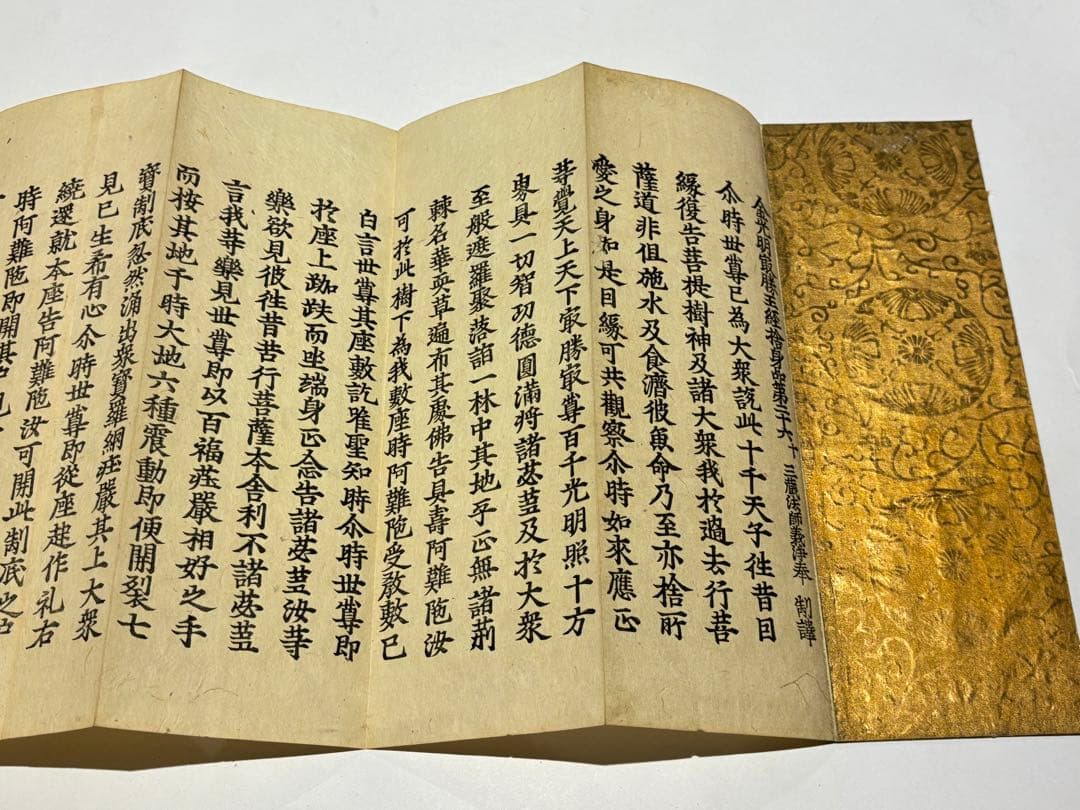 金光明冣勝王經捨身品第二十六 十 三藏法師義淨奉 制譯
尒時世尊已為大衆說此十千天子徃昔因
緣復告菩提樹神及諸大衆我於過去行菩
薩道非但施水及食濟彼魚命乃至亦捨所
愛之身如是因緣可共觀察尒時如來應正
等覺天上天下冣勝冣尊百千光明照十方
界具一切智功德圓滿將諸苾芻及於大衆
至般遮羅聚落詣一林中其地平正無諸荊
棘名華耎草遍布其處佛告具壽阿難陁汝
可於此樹下為我敷座時阿難陁受教敷已
白言世尊其座敷訖唯聖知時尒時世尊即
於座上跏趺而坐端身正念告諸苾芻汝等
樂欲見彼徃昔苦行菩薩本舍利不諸苾芻
言我等樂見世尊即以百福莊嚴相好之手
而按其地于時大地六種震動即便開裂七
寳制底忽然涌出衆寳羅網莊嚴其上大衆
見已生希有心尒時世尊即從座起作礼右
繞還就本座告阿難陁汝可開此制底之戶
時阿難陁即開其戶見